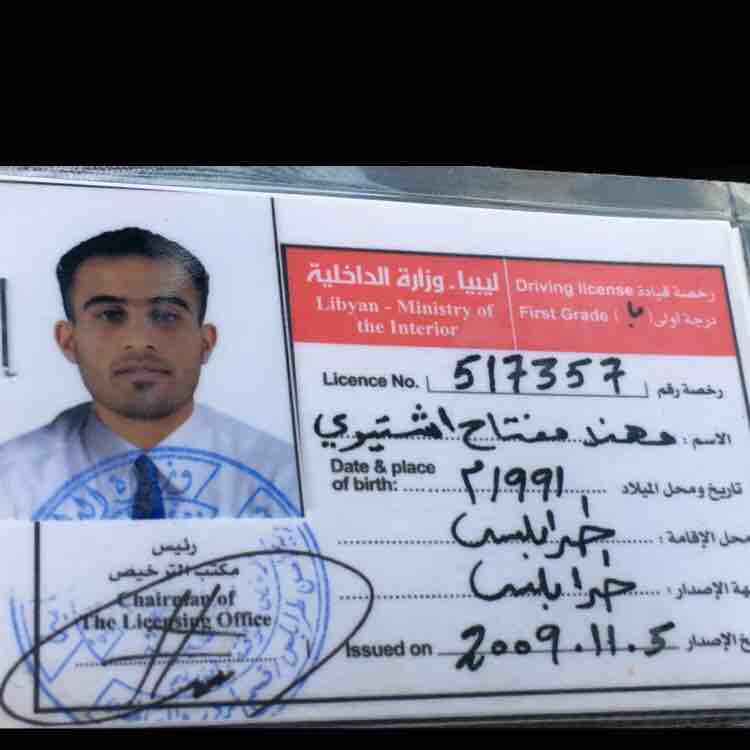 ليبيا - وزارة الداخلية
Libyan - Ministry of
the Interior
Driving license رخصة قيادة
First Grade ( ) درجة اولى
Licence No. 517357 رخصة رقم
الاسم: مهند مفتاح اشتيوي
Date & place
of birth: 1991م تاريخ ومحل الميلاد
محل الإقامة: طرابلس
هة الإصدار: طرابلس
Issued on 2009.11.5 خ الإصدار
رئيس
مكتب الترخيص
Chairman of
The Licensing Office